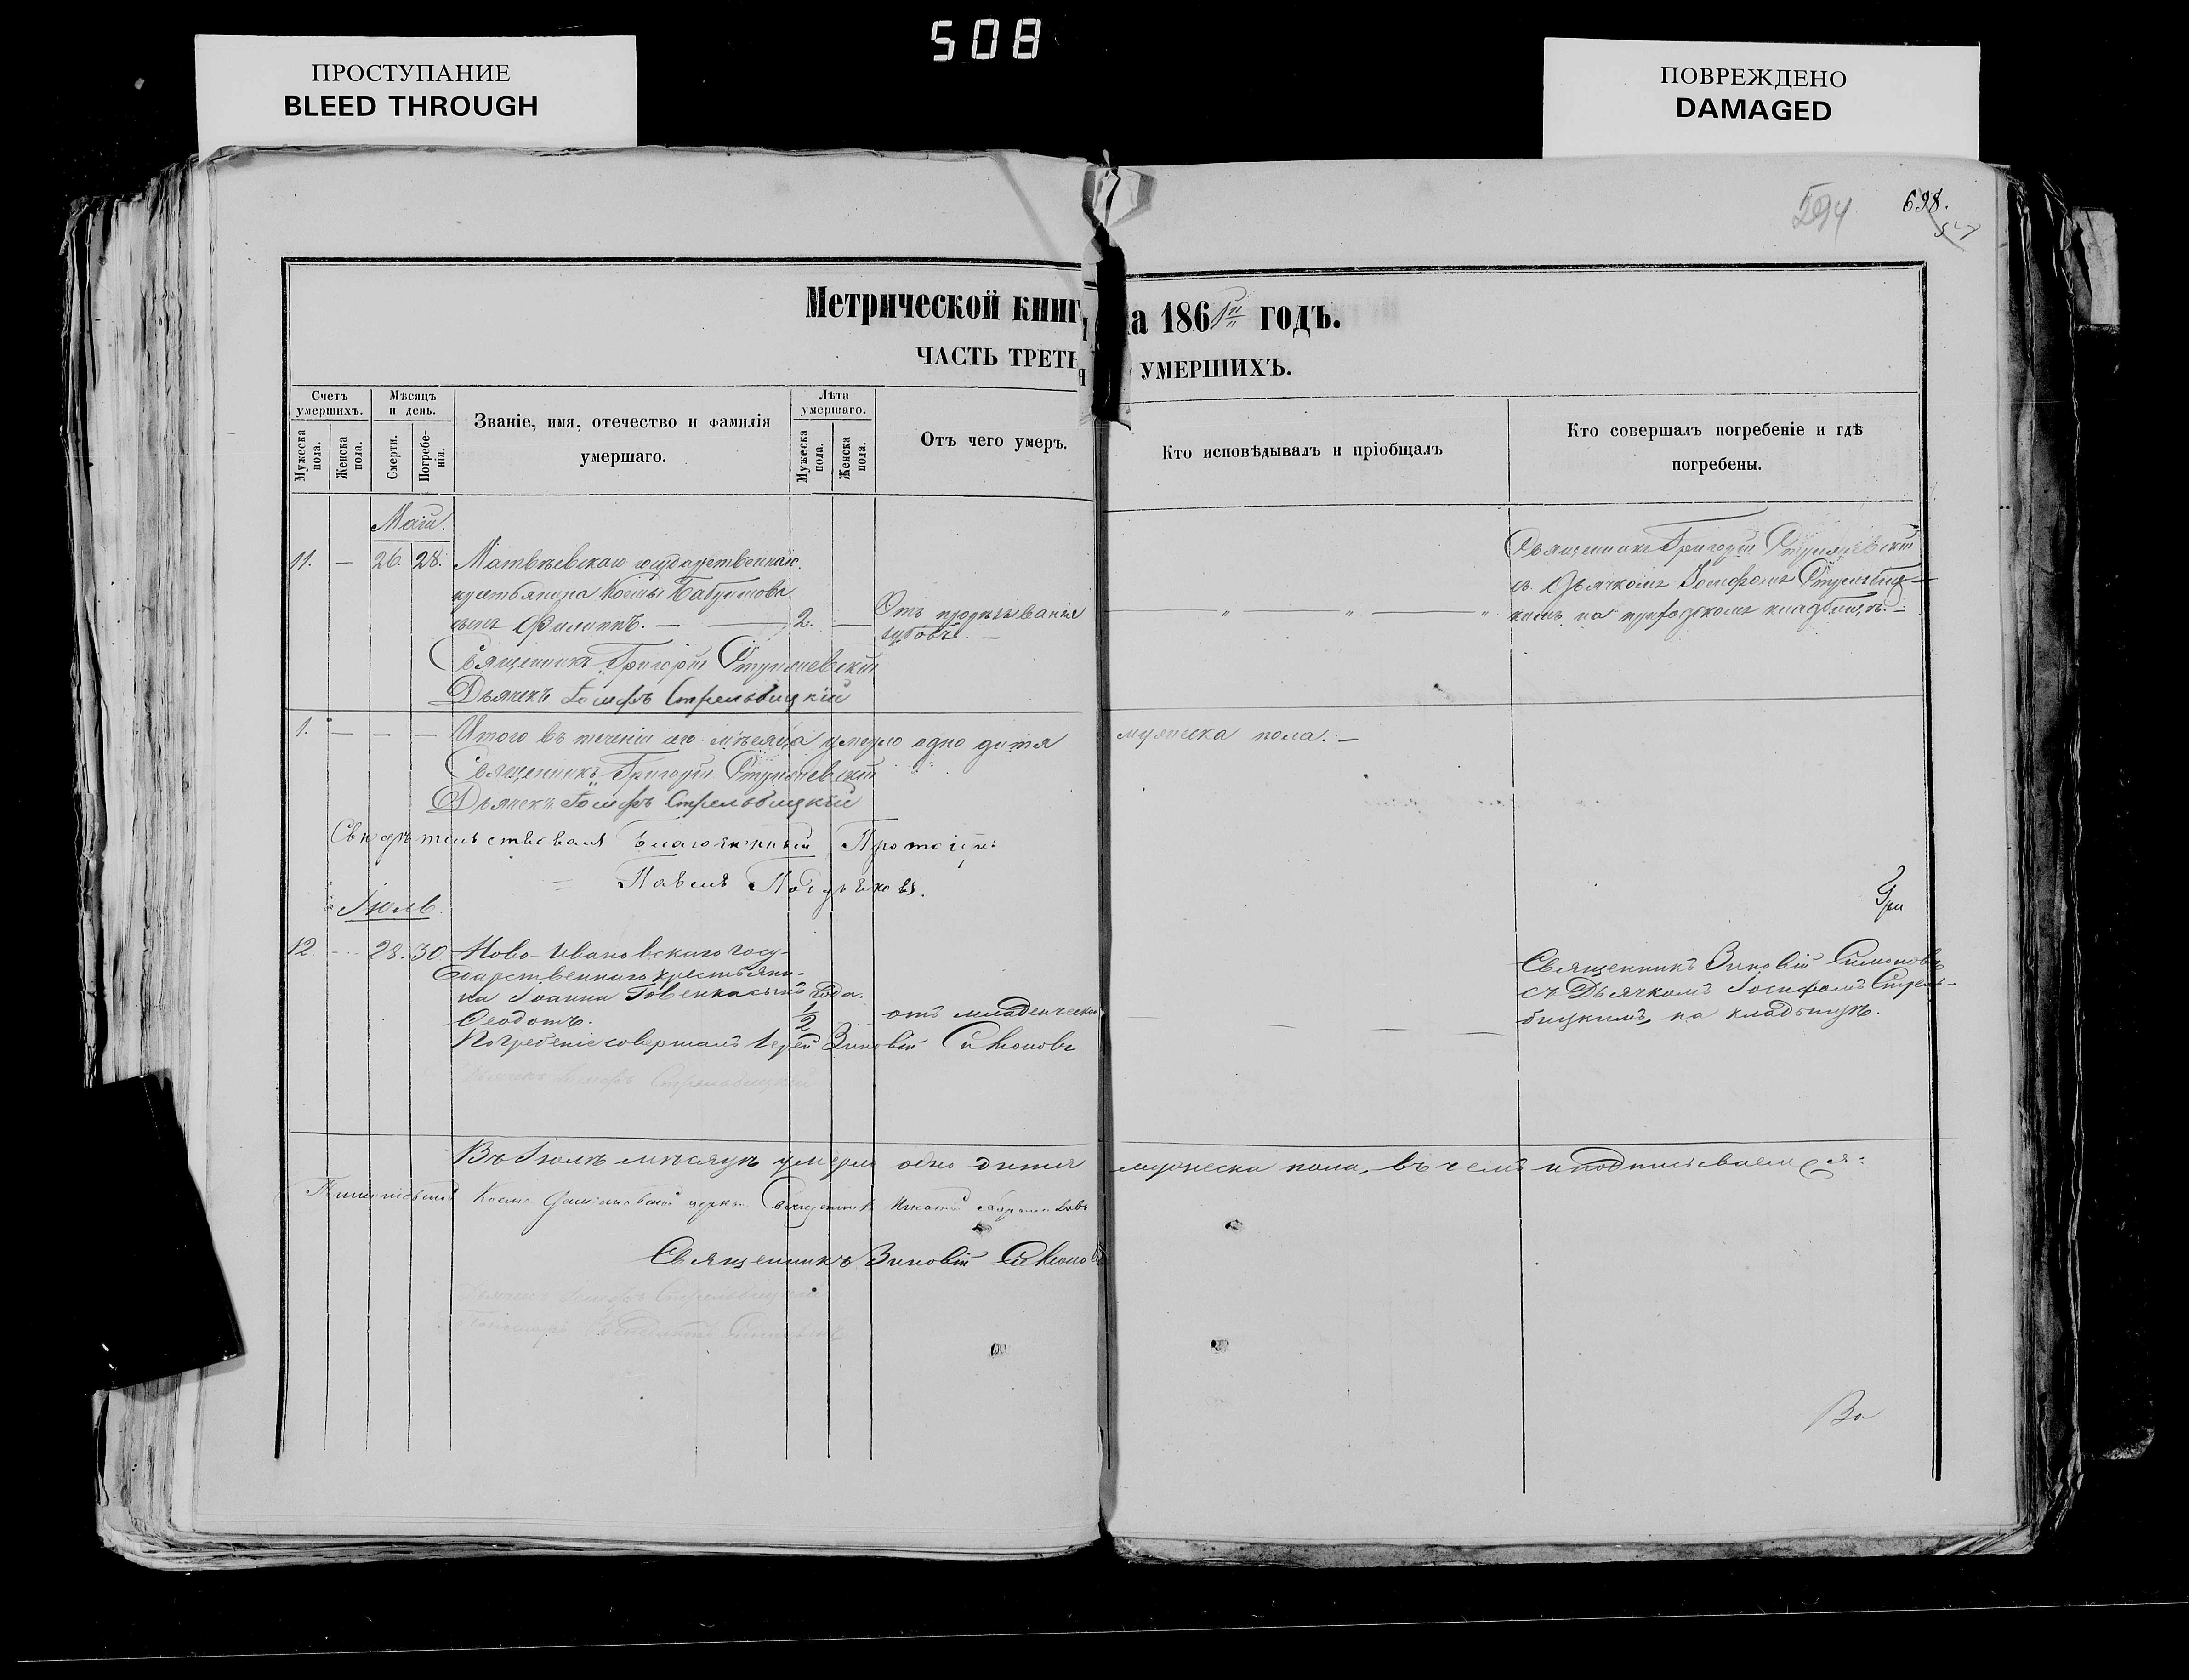 508
ПРОСТУПАНИЕ
BLEED THROUGH
ПОВРЕЖДЕНО
DAMAGED
594
698.
Метрической книг а 186 годъ.
ЧАСТЬ ТРЕТЬЯ УМЕРШИХЪ.
Счетъ умершихъ.
Мужеска пола.
Женска пола.
Мѣсяцъ и день.
Смерти.
Погребенія.
Званіе, имя, отечество и фамилія
умершаго.
Лѣта умершаго.
Мужеска пола.
Женска пола.
Отъ чего умеръ.
Кто исповѣдывалъ и пріобщалъ
Кто совершалъ погребеніе и гдѣ
погребены.
Маій.
11. — 26. 28. Матвѣевскаго государственнаго
крестьянина Космы
сынъ Филиппъ. — 2. —
Отъ прорѣзыванія
зубовъ. —
Священникъ Григорій
съ Дьячкомъ Іосифомъ Стрельбиц-
кимъ на приходскомъ кладбищѣ. —
Священникъ Григорій
Дьячекъ Іосифъ Стрельбицкій
1. — — — Итого въ теченіи мѣсяца умерло одно дитя мужеска пола. —
Священникъ Григорій
Дьячекъ Іосифъ Стрельбицкій
Свидѣтельствовалъ Благочинный Протоіер:
Павелъ
Іюль
12 — 28. 30 Ново-Ивановскаго Госу-
дарственнаго крестьяни-
на Іоанна Говенка сынъ года.
Ѳеодотъ. 1/2
отъ младенческой
Священникъ Зиновій Симоновъ
съ Дьячкомъ Іосифомъ Стрель-
бицкимъ, на кладбищѣ.
Погребеніе совершалъ Іерей Зиновій Симоновъ
Дьячекъ Іосифъ Стрельбицкій
Въ Іюлѣ мѣсяцѣ умерло одно дитя мужеска пола, въ чемъ и подписываемся:
Священникъ
Священникъ Зиновій Симоновъ
Дьячекъ Іосифъ Стрельбицкій
Пономарь